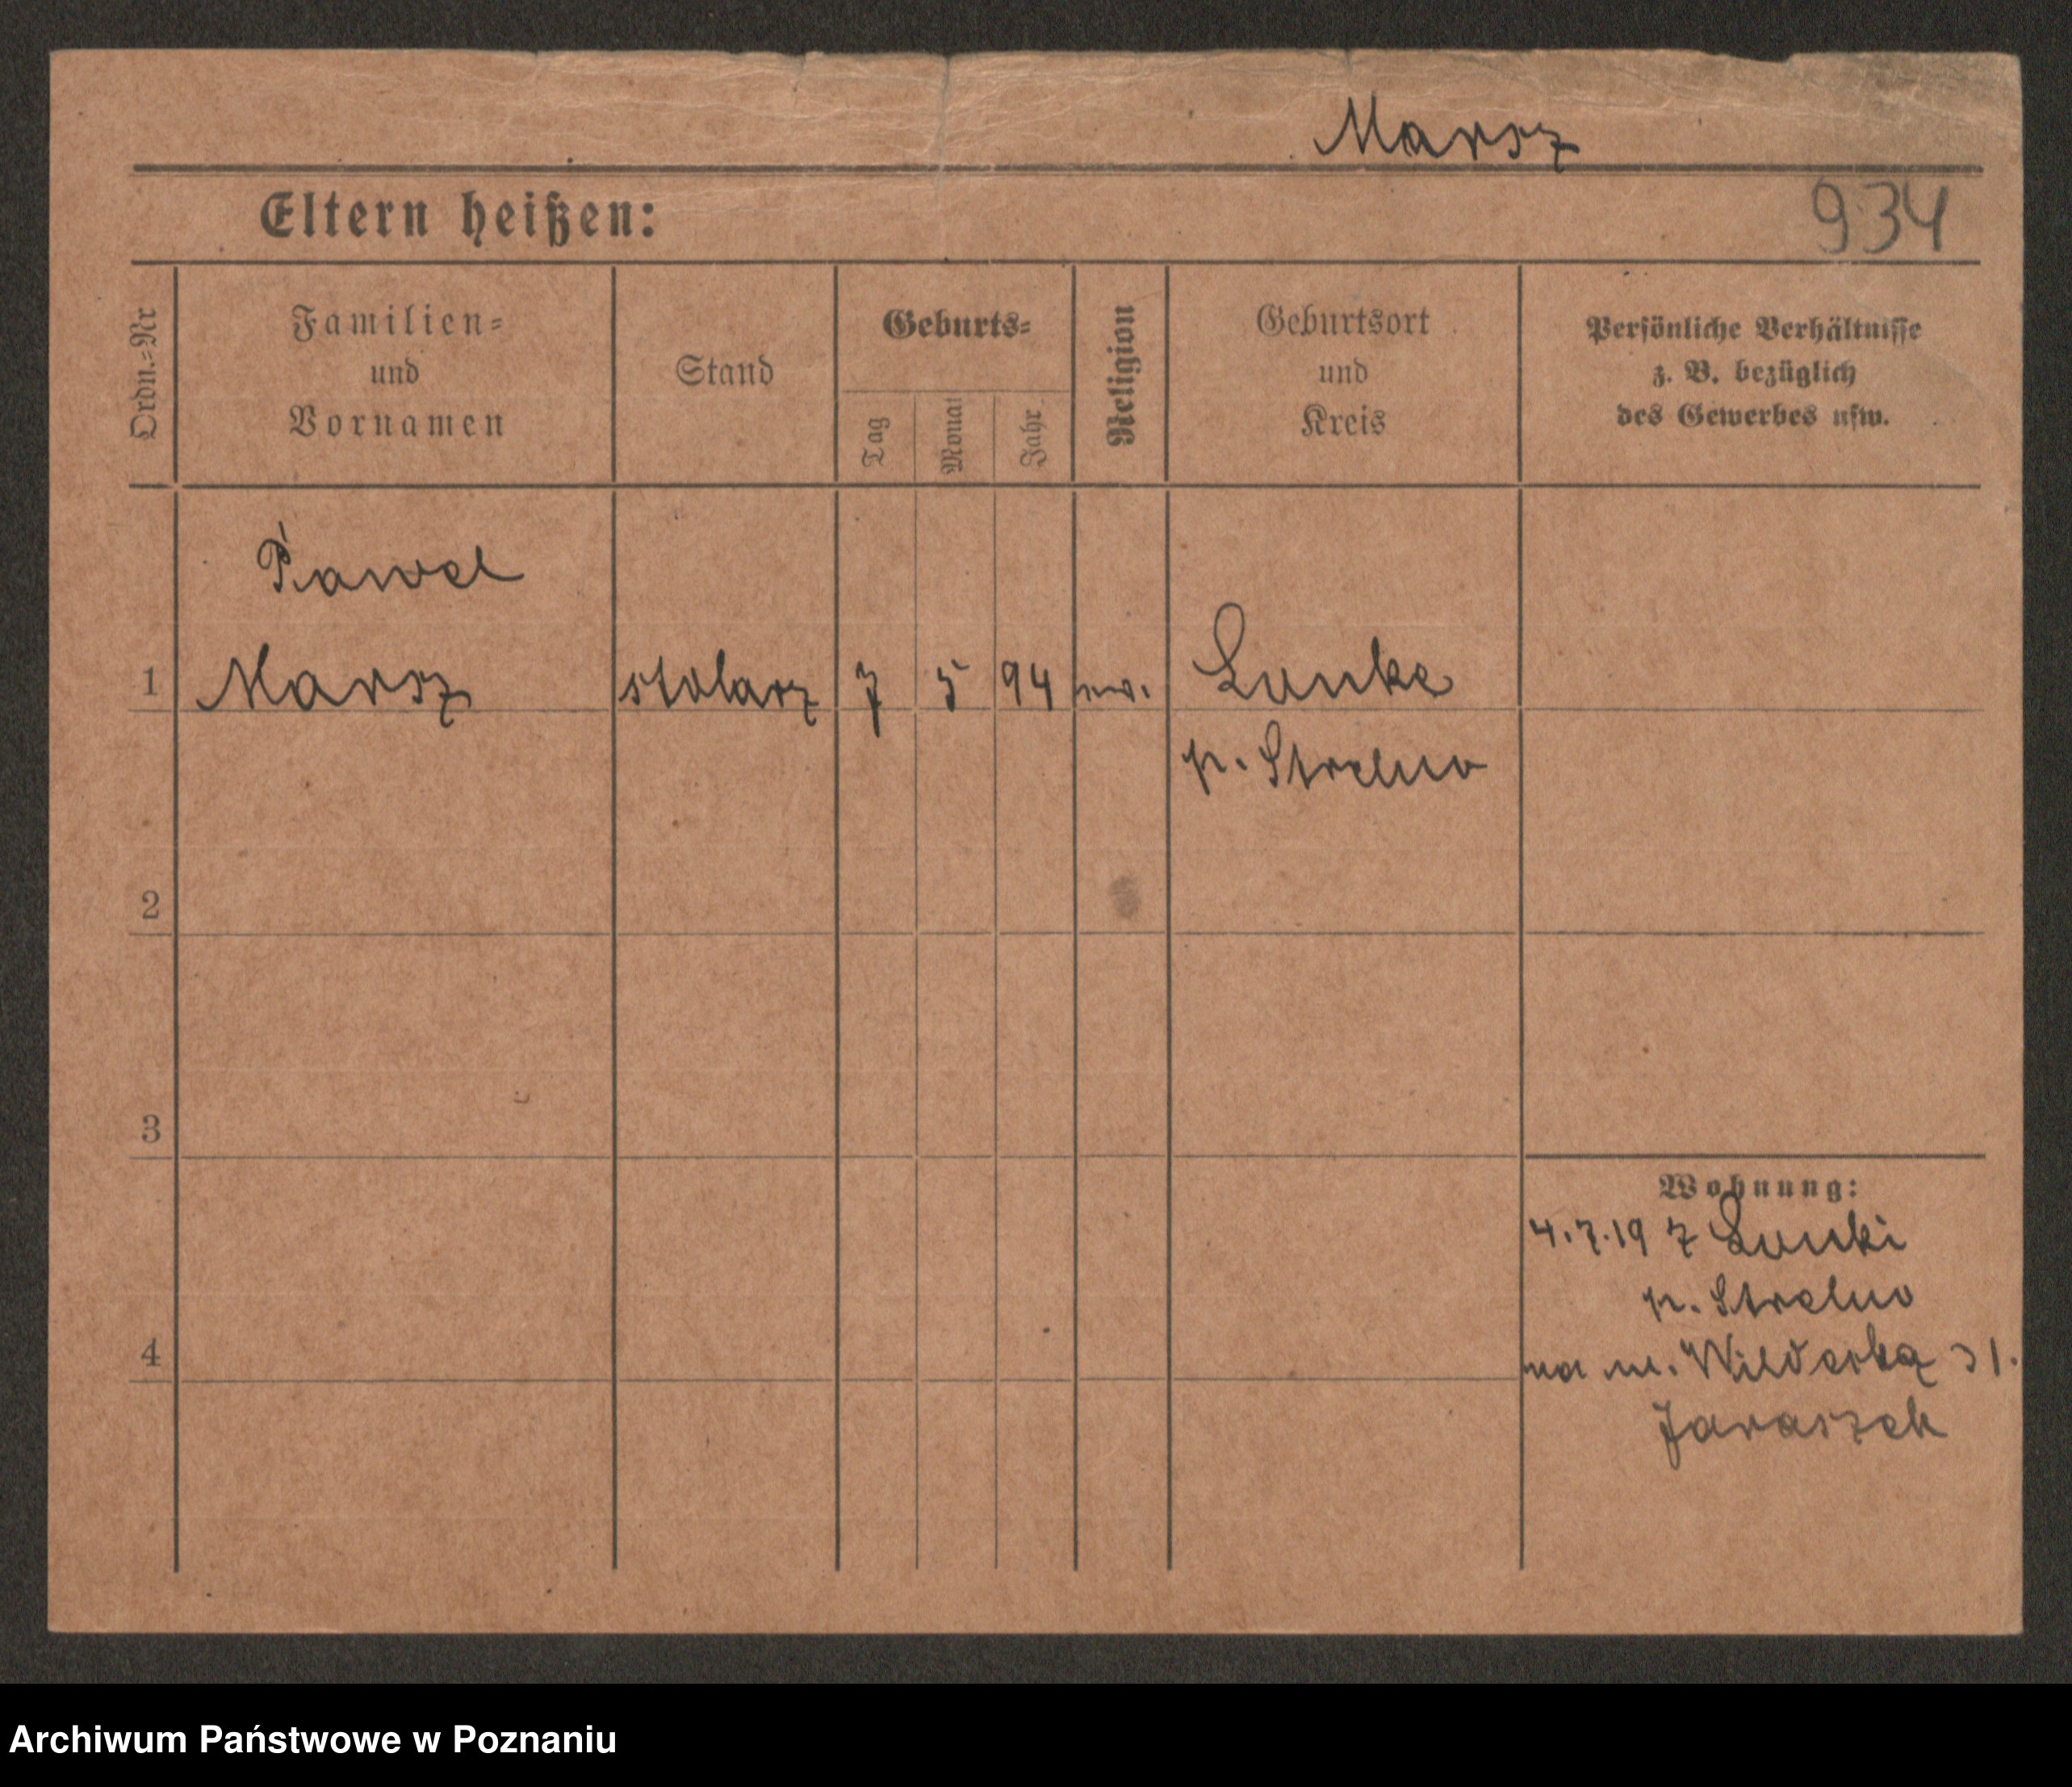 Marsz
Eltern heißen:
934
Ordn.=Nr
Familien=
und
Vornamen
Stand
Geburts=
Tag
Monat
Jahr
Religion
Geburtsort
und
Kreis
Persönliche Verhältnisse
z. B. bezüglich
des Gewerbes usw.
Pawel
1 Marsz stolarz 7 5 94 Lonke
p. Strelno
2
3
Wohnung:
4.7.19 z Lonki
p. Strelno
4
na m. Wilderką 31.
Jaraszek
Archiwum Państwowe w Poznaniu